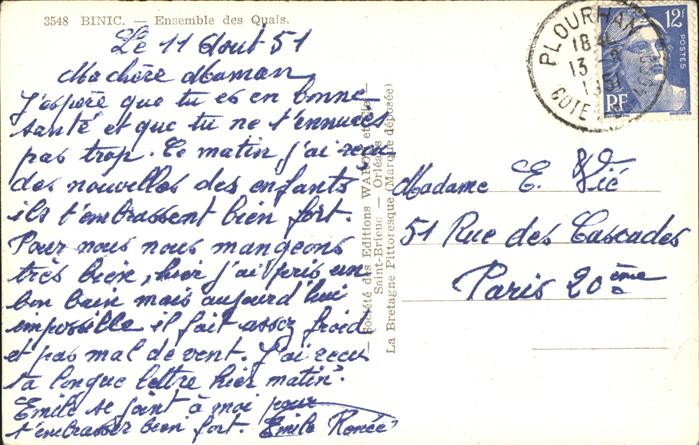 3548 BINIC. — Ensemble des Quais.
Le 11 Aout 51
Ma chère Maman
J'espère que tu es en bonne
santé et que tu ne t'ennuies
pas trop. Ce matin j'ai recu
des nouvelles des enfants
ils t'embrassent bien fort.
Pour nous nous mangeons
très bien, hier j'ai pris un
bon bain mais aujourd'hui
impossible il fait assez froid
et pas mal de vent. J'ai recu
ta longue lettre hier matin.
Emile se joint à moi pour
t'embrasser bien fort. Emile Renée
Société des Editions WARON et
Saint-Brieuc — Orléans
La Bretagne Pittoresque (Marque déposée)
PLOURHAN
18
13
1951
COTES
12F
POSTES
RF
Madame E. Vié
51 Rue des Cascades
Paris 20ème